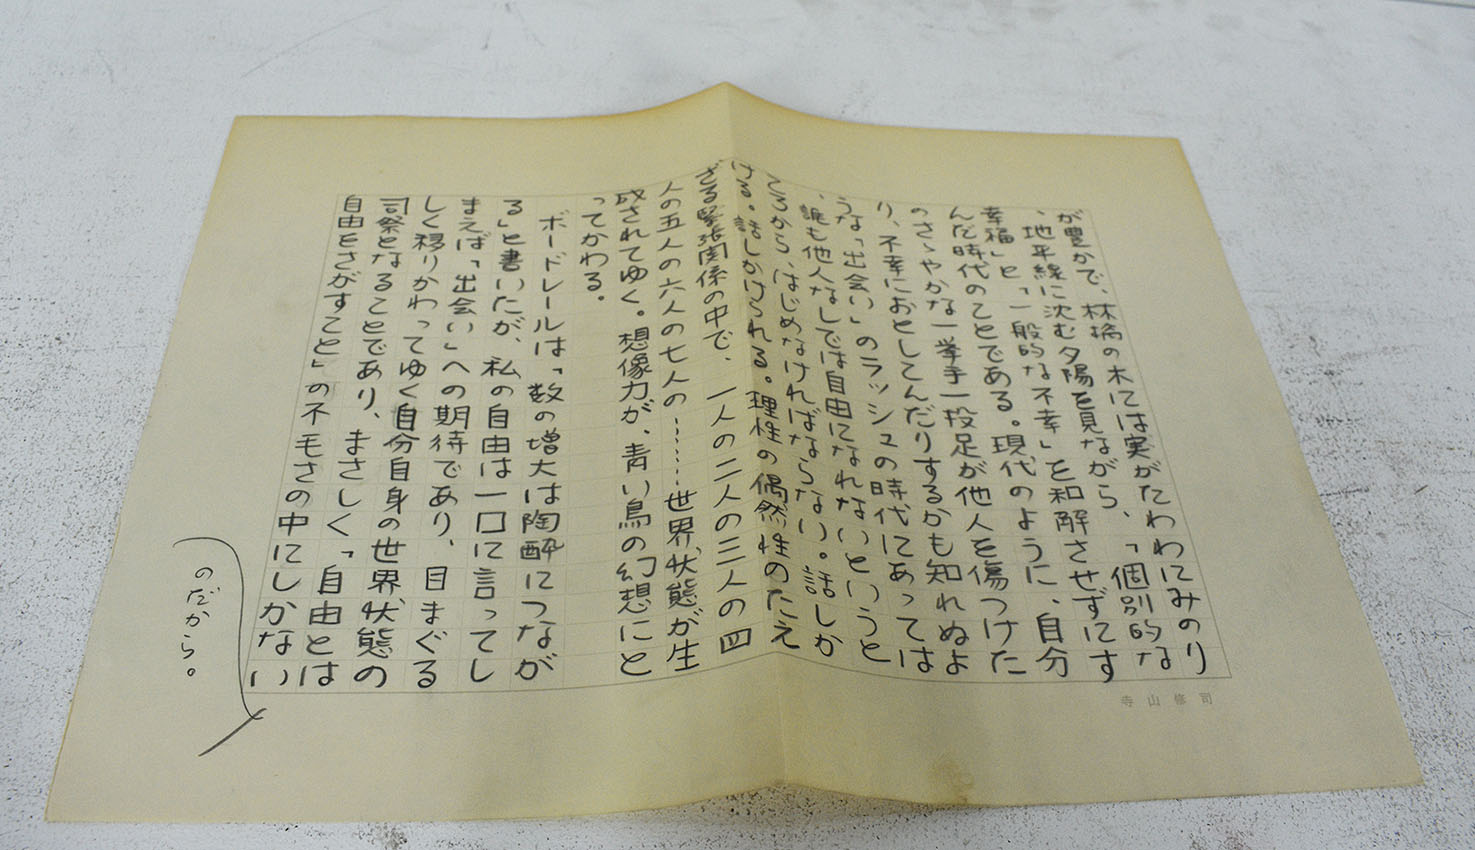 が豊かで、林檎の木には実がたわわにみのり
、地平線に沈む夕陽を見ながら、「個別的な
幸福」と「一般的な不幸」を和解させずにす
んだ時代のことである。現代のように、自分
のさゝやかな一挙手一投足が他人を傷つけた
り、不幸におとしてんだりするかも知れぬよ
うな「出会い」のラッシュの時代にあっては
、誰も他人なしでは自由になれないというと
ころから、はじめなければならない。話しか
ける。話しかけられる。理性の偶然性のたえ
ざる緊張関係の中で、一人の二人の三人の四
人の五人の六人の七人の……世界状態が生
成されてゆく。想像力が、青い鳥の幻想にと
ってかわる。
ボードレールは「数の増大は陶酔につなが
る」と書いたが、私の自由は一口に言ってし
まえば「出会い」への期待であり、目まぐる
しく移りかわってゆく自分自身の世界状態の
司祭となることであり、まさしく「自由とは
自由をさがすこと」の不毛さの中にしかない
のだから。
寺山修司